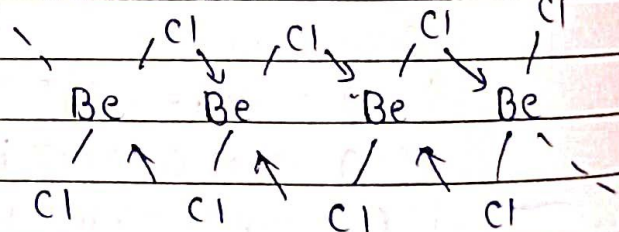 Cl Cl Cl Cl
Be Be Be Be
Cl Cl Cl Cl